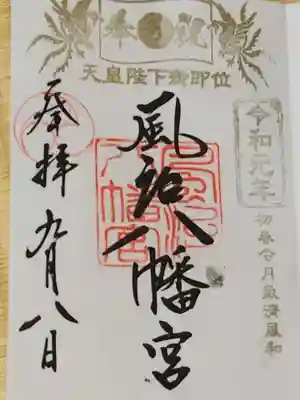 奉祝
天皇陛下御即位
令和元年
初春令月気淑風和
風治八幡宮
奉拝
九月八日